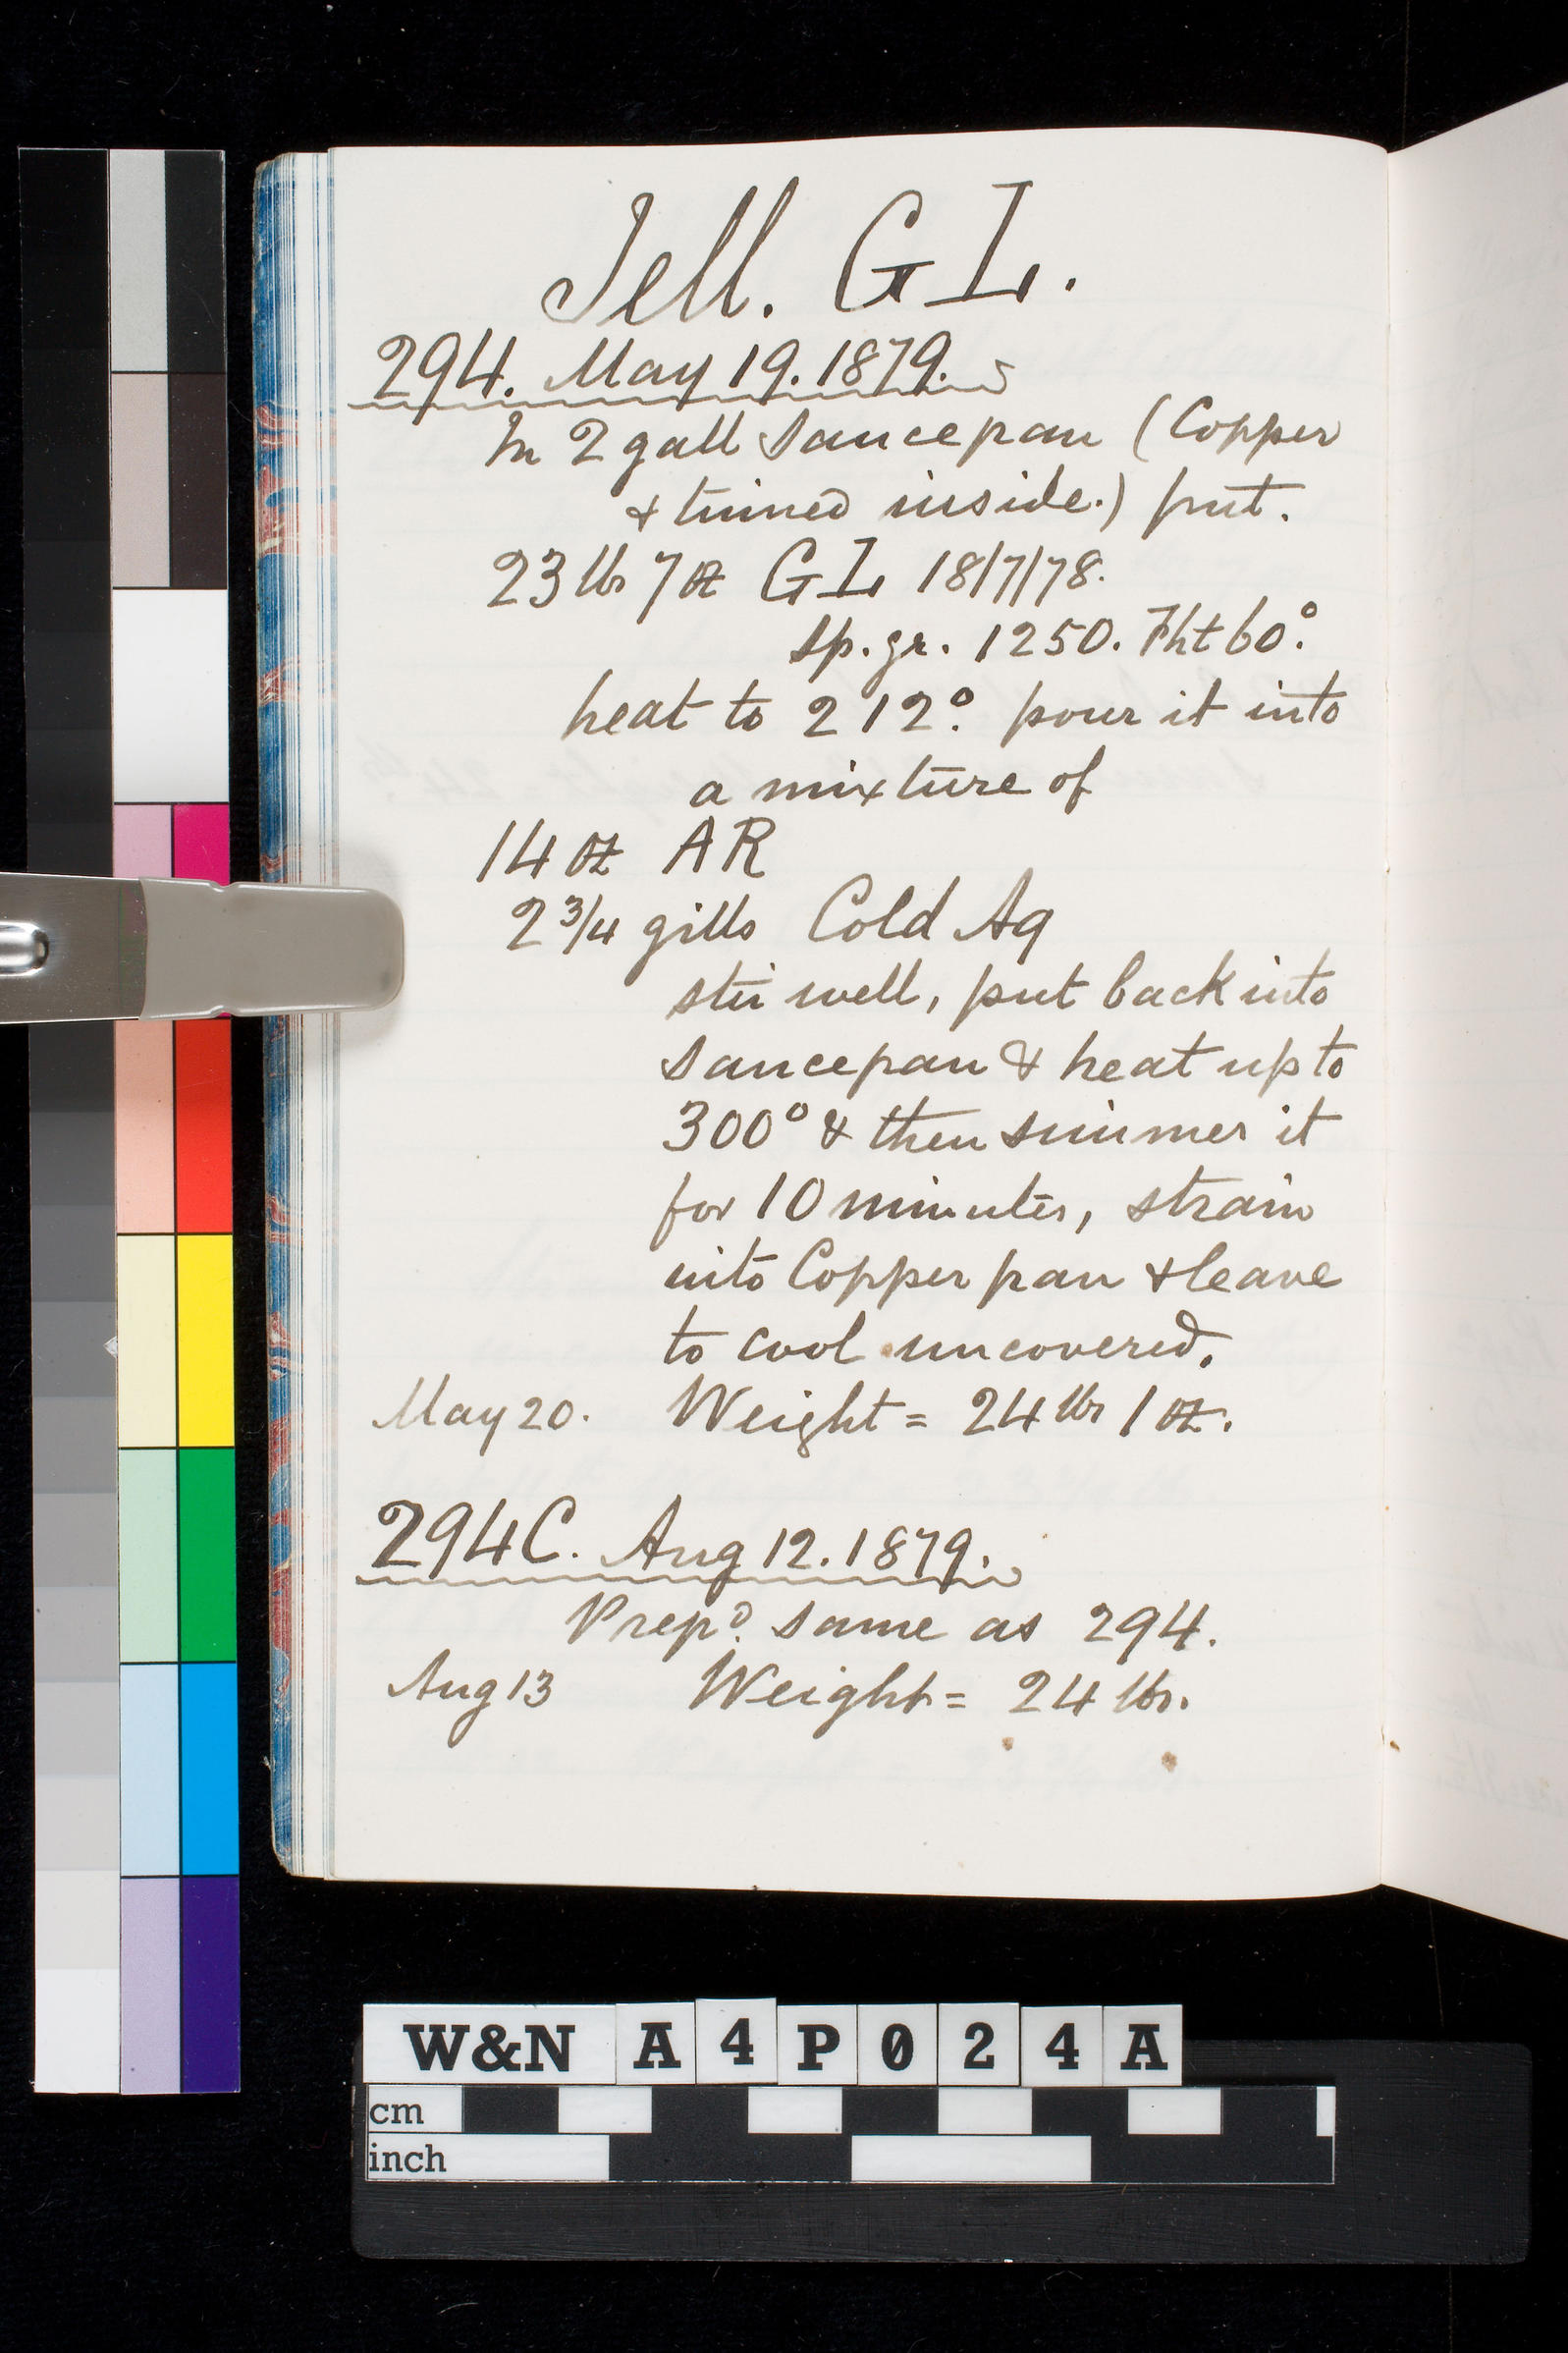 Jell. GL.
294. May 19. 1879.
In 2 gall Saucepan (Copper
& tinned inside.) put.
23 lbs 7 oz GL 18/7/78.
sp. gr. 1250. Fht 60°.
heat to 212°. pour it into
a mixture of
14 oz AR
2 3/4 gills Cold Aq
stir well, put back into
Saucepan & heat up to
300° & then simmer it
for 10 minutes, strain
into Copper pan & leave
to cool uncovered.
May 20. Weight = 24 lbs 1 oz.
294C. Aug 12. 1879.
Prepd. same as 294.
Aug 13 Weight = 24 lbs.
W&N A4P024A
cm
inch